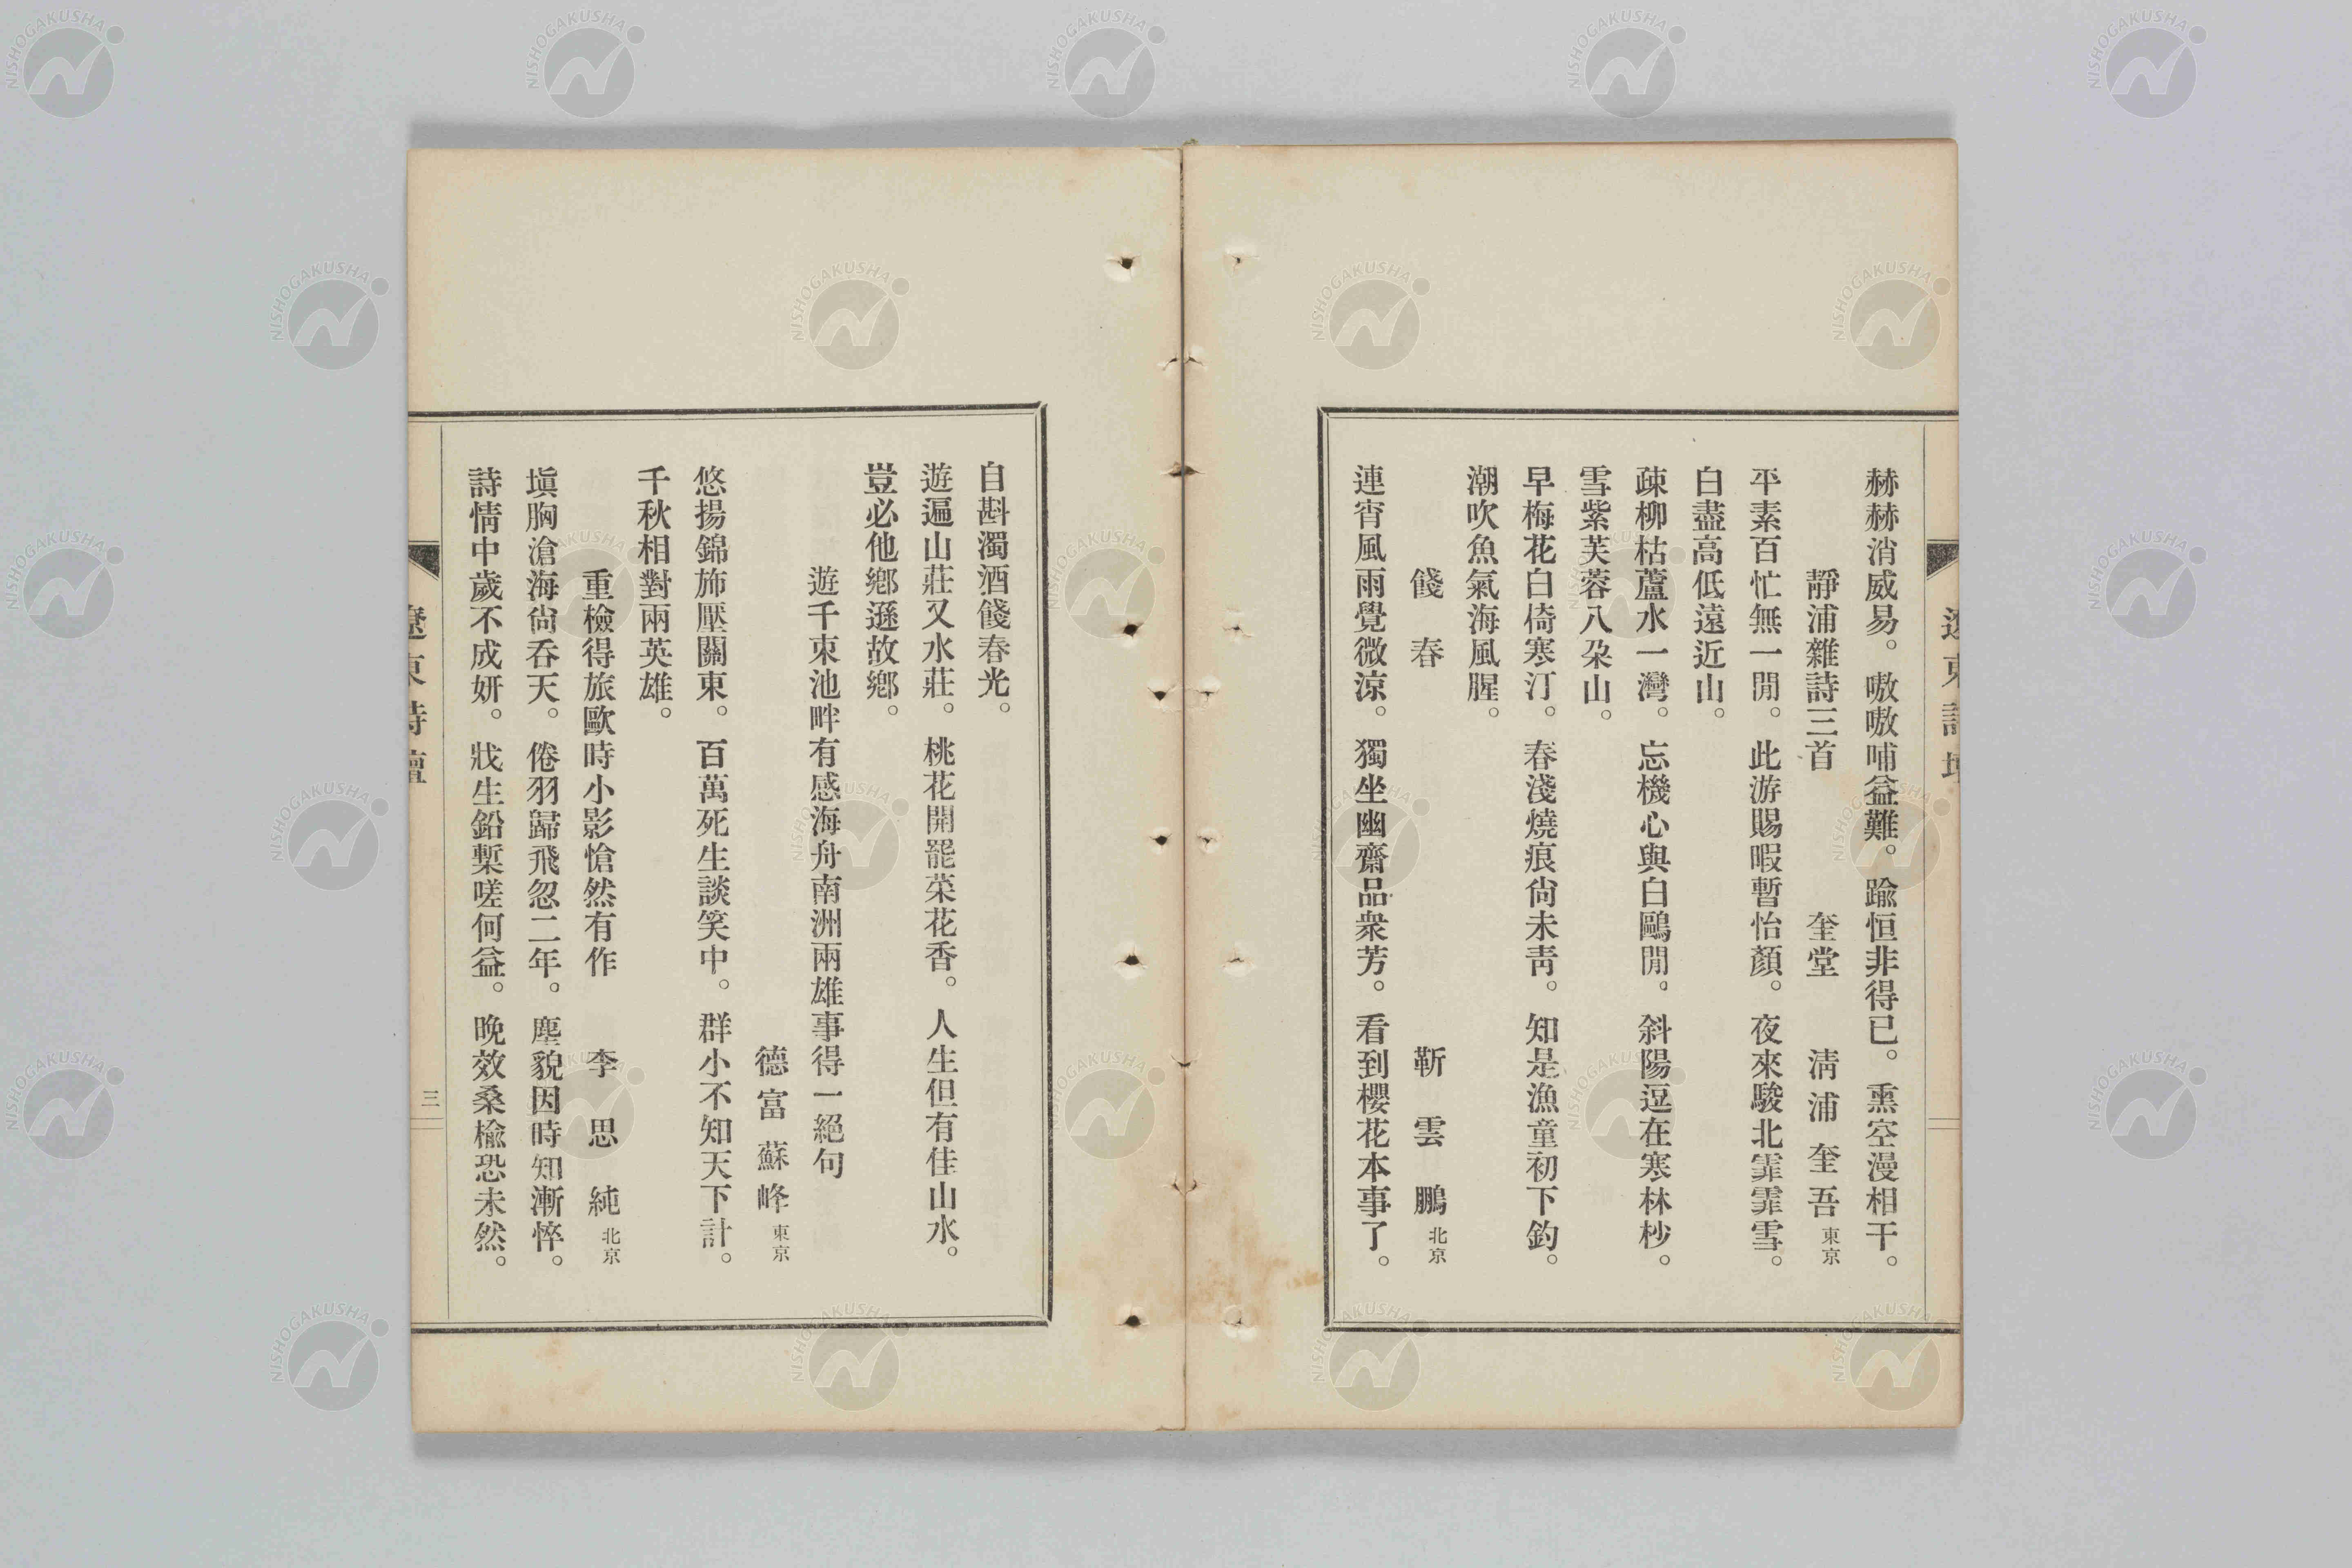 赫赫消威易。嗷嗷哺益難。踰恒非得已。熏空漫相干。
靜浦雜詩三首　奎堂　淸浦奎吾 東京
平素百忙無一閒。此游賜暇暫怡顏。夜來駿北霏霏雪。
白盡高低遠近山。
疎柳枯蘆水一灣。忘機心與白鷗閒。斜陽逗在寒林杪。
雪紫芙蓉八朶山。
早梅花白倚寒汀。春淺燒痕尙未靑。知是漁童初下釣。
潮吹魚氣海風腥。
餞春　靳雲鵬 北京
連宵風雨覺微涼。獨坐幽齋品衆芳。看到櫻花本事了。
自斟濁酒餞春光。
遊遍山莊又水莊。桃花開罷菜花香。人生但有佳山水。
豈必他鄕遜故鄕。
遊千束池畔有感海舟南洲兩雄事得一絕句
德富蘇峰 東京
悠揚錦斾壓關東。百萬死生談笑中。群小不知天下計。
千秋相對兩英雄。
重檢得旅歐時小影愴然有作　李思純 北京
塡胸滄海尙呑天。倦羽歸飛忽二年。塵貌因時知漸悴。
詩情中歲不成妍。戕生鉛槧嗟何益。晚效桑楡恐未然。
遼東詩壇
三